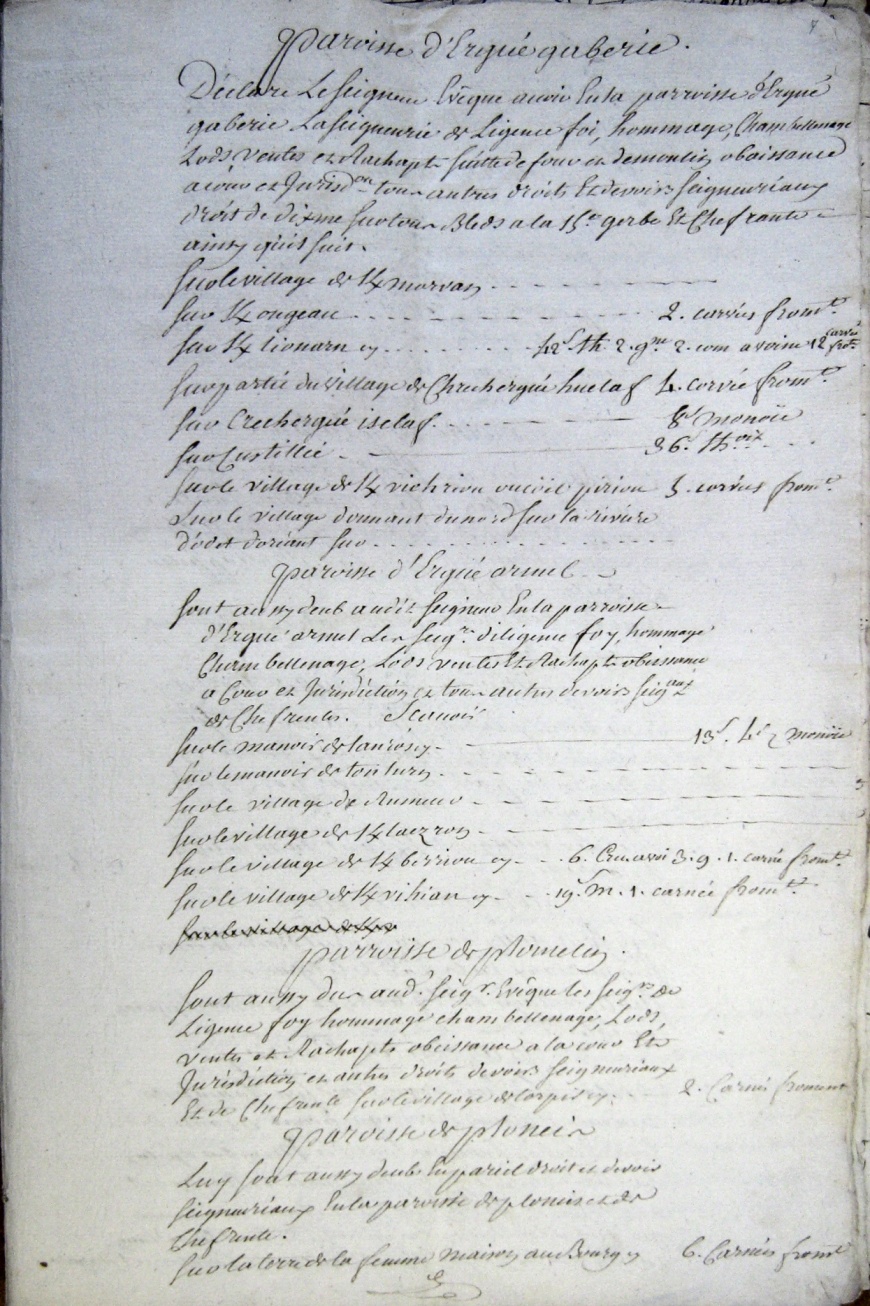 paroisse d'Ergué gaberic.
Déclare Le seigneur Evêque avoir En la parroisse d'Ergué
gaberic La seigneurie de Ligence foi, hommage, Chambellenage
Lods ventes et Rachapt suitte de four et de moulin, obaissance
a cour et Jurisdon tous autres droits Et devoirs seigneuriaux
droit de dixme sur tous Bleds a la 15e gerbe Et Chefrante
ainsy qu'il suit.
sur le village de K/morvan
sur K/ongeau 2. carrées fromt.
sur K/lionarn 42s th. 2. gne 2. com avoine 12 carrée frot.
sur partie du village de Chrecherqué huelaf 4. corvée fromt.
sur Crecherqué iselaf. 8d monoie
sur Custillic 36s th
sur le village de K/ viehriou pirion 3. corvées fromt.
sur le village donnant du nord sur la rivière
d'odet d'oriant sur
paroisse d'Ergué armel
sont aussy deub audit seigneur En la parroisse
d'Ergué armel Les seigr. de ligence foy, hommage
Chambellenage, Lods ventes Et Rachapt obeissance
a Cour et Jurisdiction et tous autres devoirs seigaux
de Chefrentes. Scavoir
sur le manoir de lanrósy 13s. 4d monoie
sur le manoir de toulturn
sur le village de Rumeur
sur le village de K/laezron
sur le village de K/berriou 6. avoi 3. g. 1. carée fromt.
sur le village de K/vihian 19s. m. 1. carnée fromt.
sur le village de K/
parroisse de plomelin.
sont aussy dus aud. seigr. Evêque les seigrs. de
Ligence foy hommage chambellenage, Lods,
ventes et Rachapts obeissance a la cour Et
Jurisdiction et autres droits devoirs seigneuriaux
Et de Chefrente sur le village de lorpisy 2. Carnées froment
paroisse de ploneis
Luy sont aussy deub En pareil droit et devoir
seigneuriaux En la paroisse de ploneis et de
Chefrente.
sur la terre de la femme maison au Bourg 6. Carnées fromt